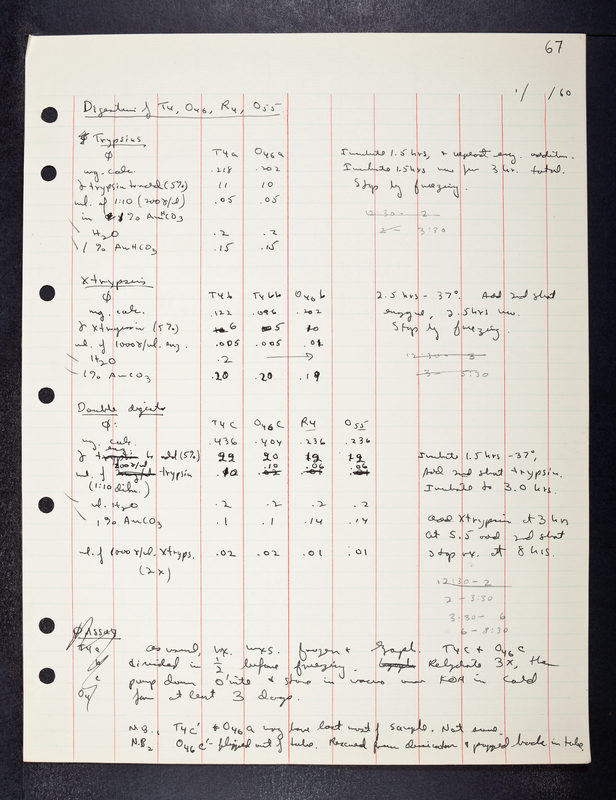 67
1/ /60
Digestion of T4, O46, R4, O55
Trypsins
Ø T4a O46a
mg. calc. .218 .202
γ trypsin to add (5%) 11 10
ml. of 1:10 (200γ/l) .05 .05
in 1% AmHCO3
H2O .2 .2
1% AmHCO3 .15 .15
Incubate 1.5 hrs, + repeat enz. addition.
Incubate 1.5 hrs more for 3 hr. total.
Stop by freezing.
12:30 - 2
2 - 3:30
Xtrypsin
Ø T4b T46b O46b
mg. calc. .122 .096 .202
γ Xtrypsin (5%) 6 5 10
ml. of 1000γ/ml. enz. .005 .005 .01
H2O .2
1% AmCO3 .20 .20 .19
2.5 hrs - 37°. Add 2nd shot
enzyme, 2.5 hrs more.
Stop by freezing.
12:30 - 3
3 - 5:30
Double digests
Ø: T4C O46C R4 O55
mg. calc. .436 .404 .236 .236
γ enz to add (5%) 22 20 12 12
ml of 200γ/ml trypsin .10 .10 .06 .06
(1:10 diln.)
ml. H2O .2 .2 .2 .2
1% AmCO3 .1 .1 .14 .14
ml. of 1000γ/ml. Xtryps. .02 .02 .01 .01
(2x)
Incubate 1.5 hr - 37°,
Add 2nd shot trypsin.
Incubate to 3.0 hrs.
Add Xtrypsin at 3 hrs
At 5.5 add 2nd shot
Stop rx. at 8 hrs.
12:30 - 2
2 - 3:30
3:30 - 6
6 - 8:30
Ø Assay
T4a as usual, rx. mxs. frozen + lyoph. T4C + O46C
b divided in 1/2 before freezing. Rehydrate 3x, then
c pump down o'nite + store in vacuo over KOH in cold
for at least 3 days.
N.B.1 T4C' + O46a may have lost most of sample. Not sure.
N.B2 O46C' - flipped out of tube. Rescued from desiccator + popped back in tube.